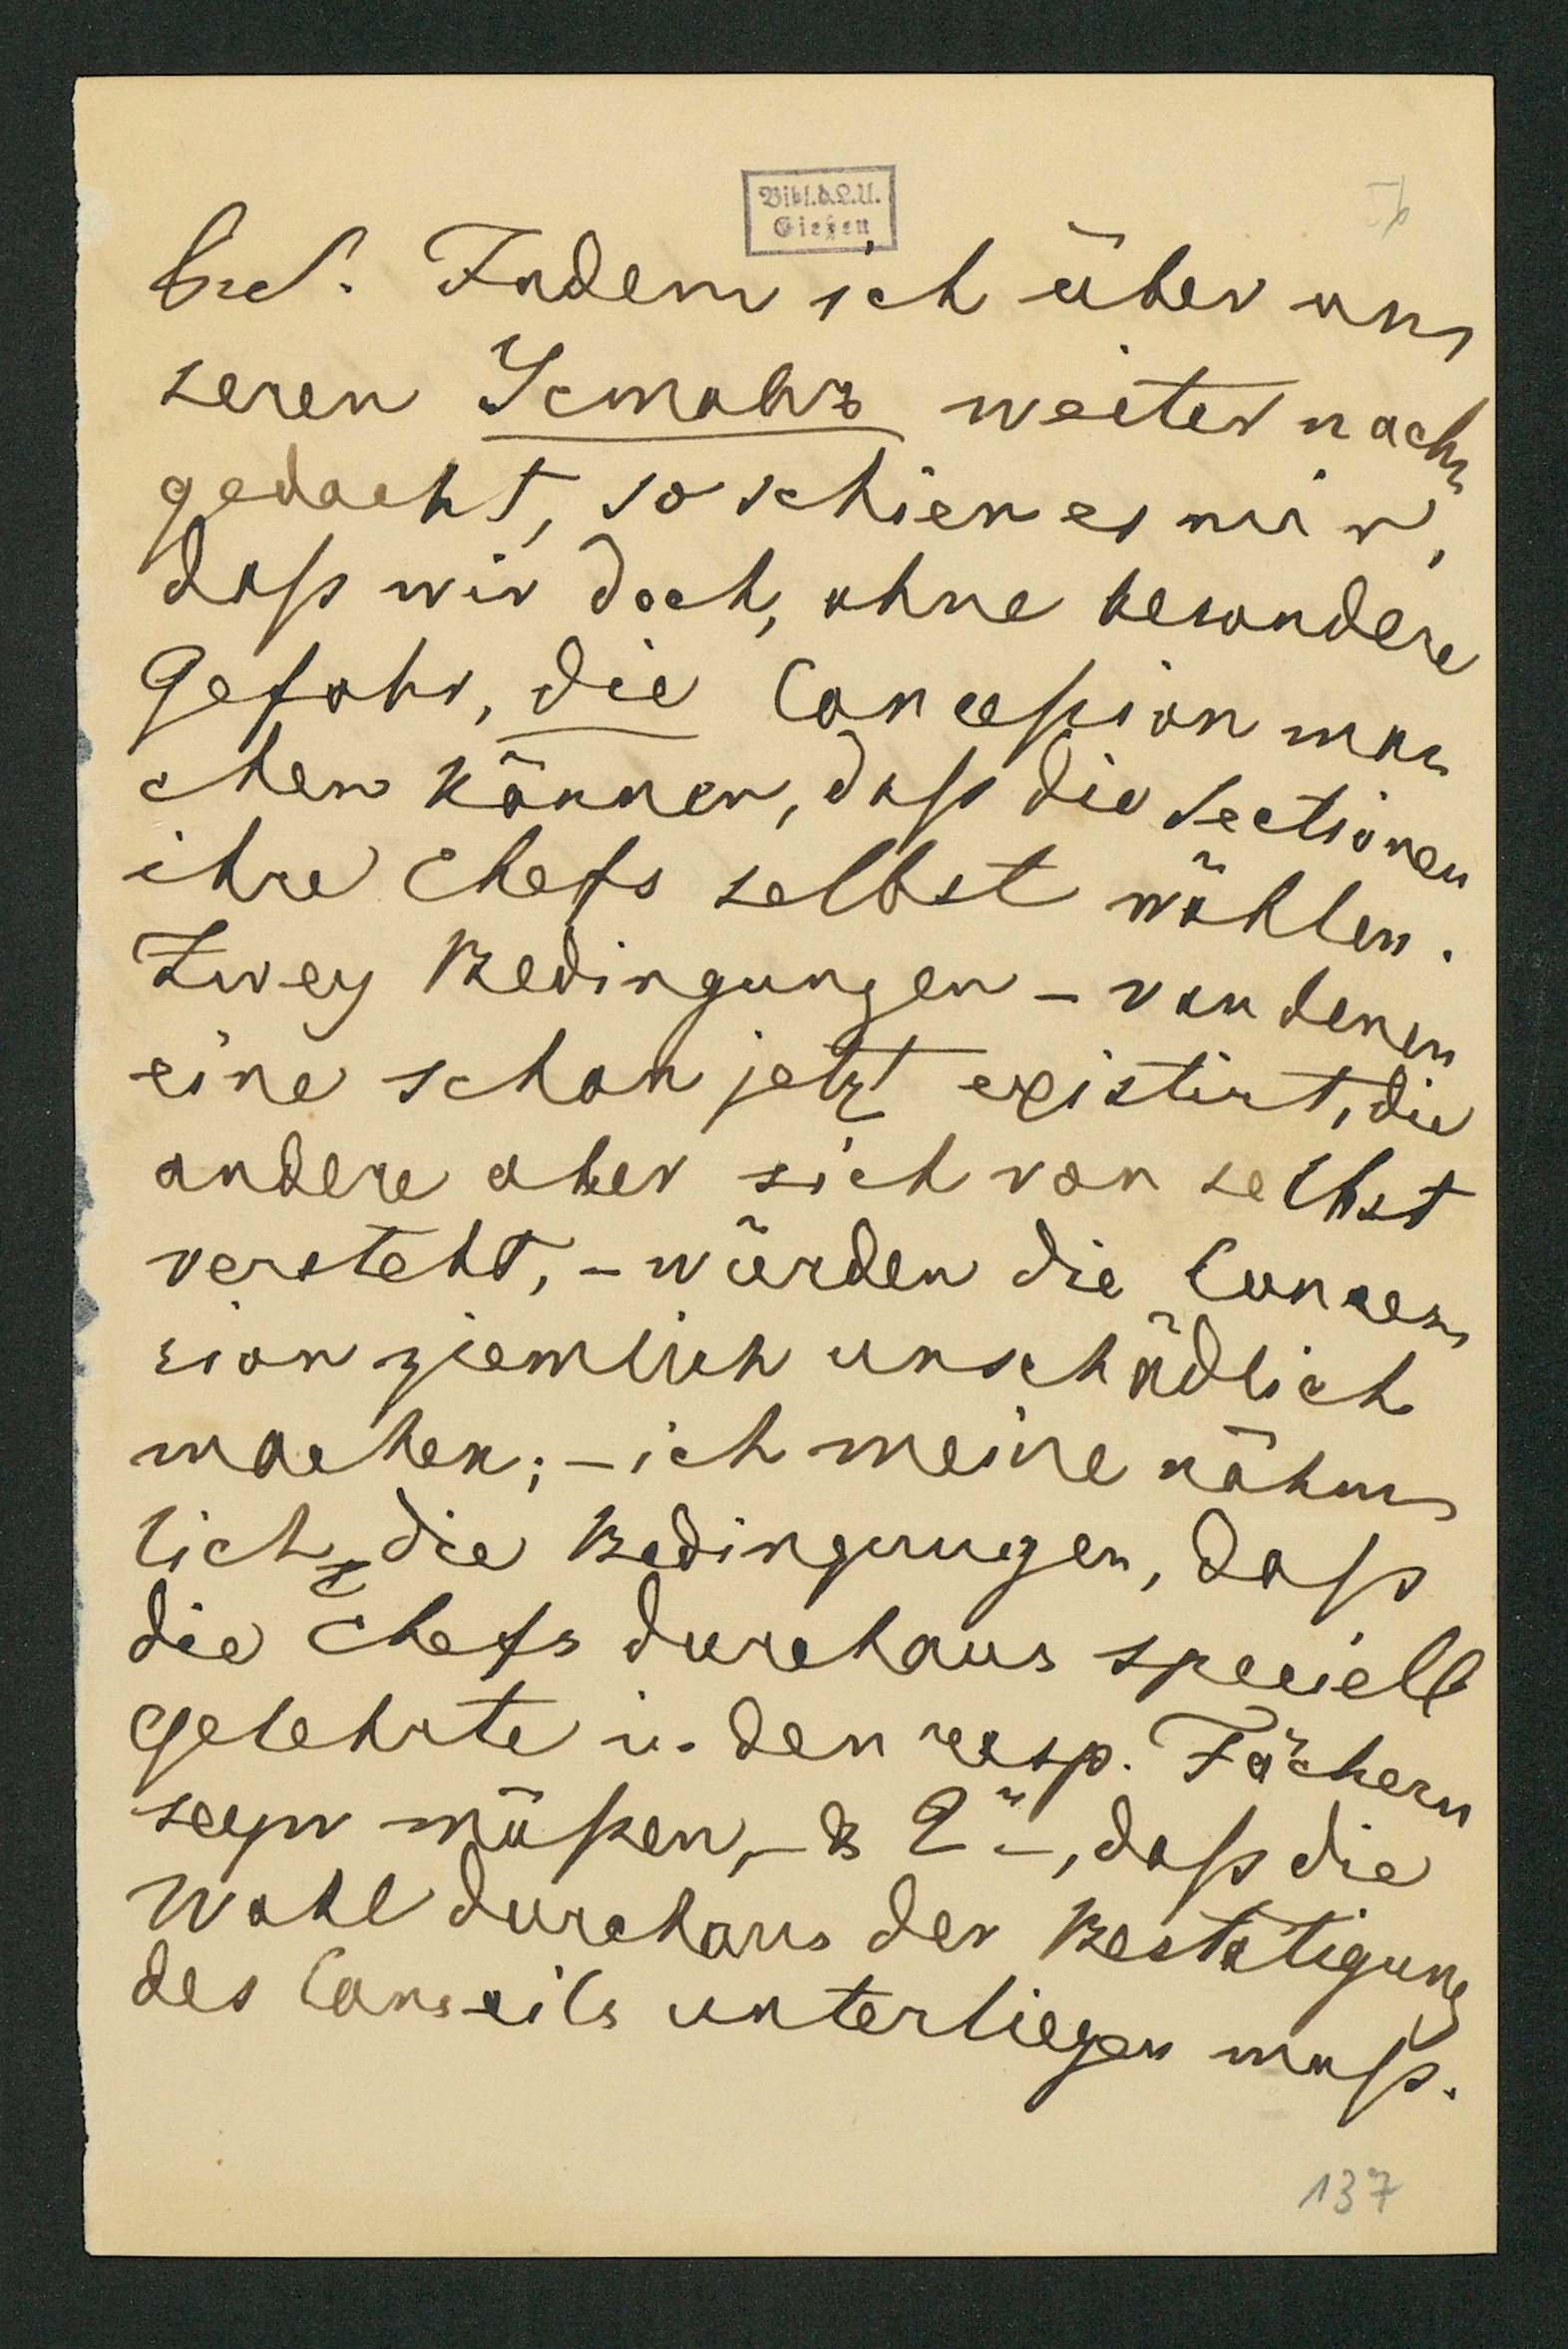 Bibl.d.L.U.
Gießen
Indem ich über un-
seren weiter nach-
gedacht, so schien es mir,
daß wir doch, ohne besondere
Gefahr, die Conceßion ma-
chen können, daß die Sectionen
ihre Chefs selbst wählen.
Zwey Bedingungen – von denen
eine schon jetzt existirt, die
andere aber sich von selbst
versteht, – würden die Conces-
sion ziemlich unschädlich
machen; – ich meine nähm-
lich die Bedingungen, daß
die Chefs durchaus speciell
gelehrte in den resp. Fächern
seyn müßen, – & 2 –, daß die
Wahl durchaus der Bestätigung
des Conseils unterliegen muß.
137